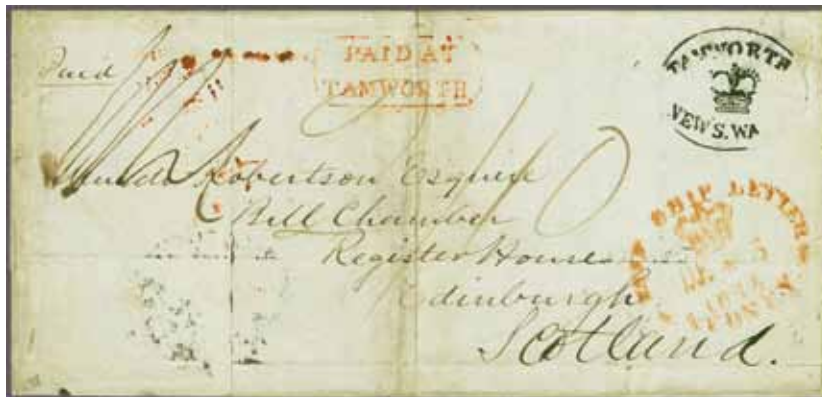 Paid
PAID AT
TAMWORTH
TAMWORTH
NEW S. WA
Robertson Esquire
Bill Chamber
Register House
Edinburgh
Scotland.
PAID SHIP LETTER
SYDNEY